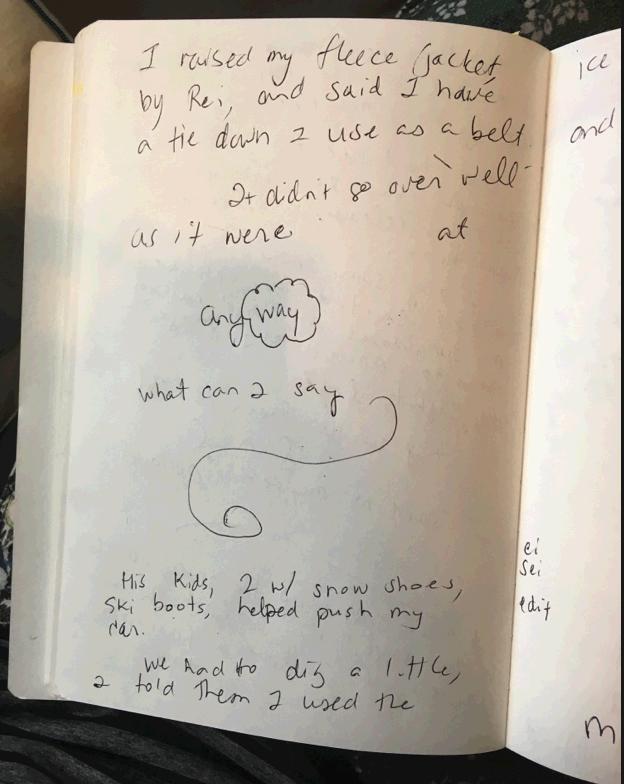 I raised my fleece jacket
by Rei, and said I have
a tie down I use as a belt.
It didn't go over well
as it were at
any way
what can I say
His Kids, 2 w/ snow shoes,
Ski boots, helped push my
car.
We had to dig a little,
I told them I used the
ice
and
ei
sei
edit
m